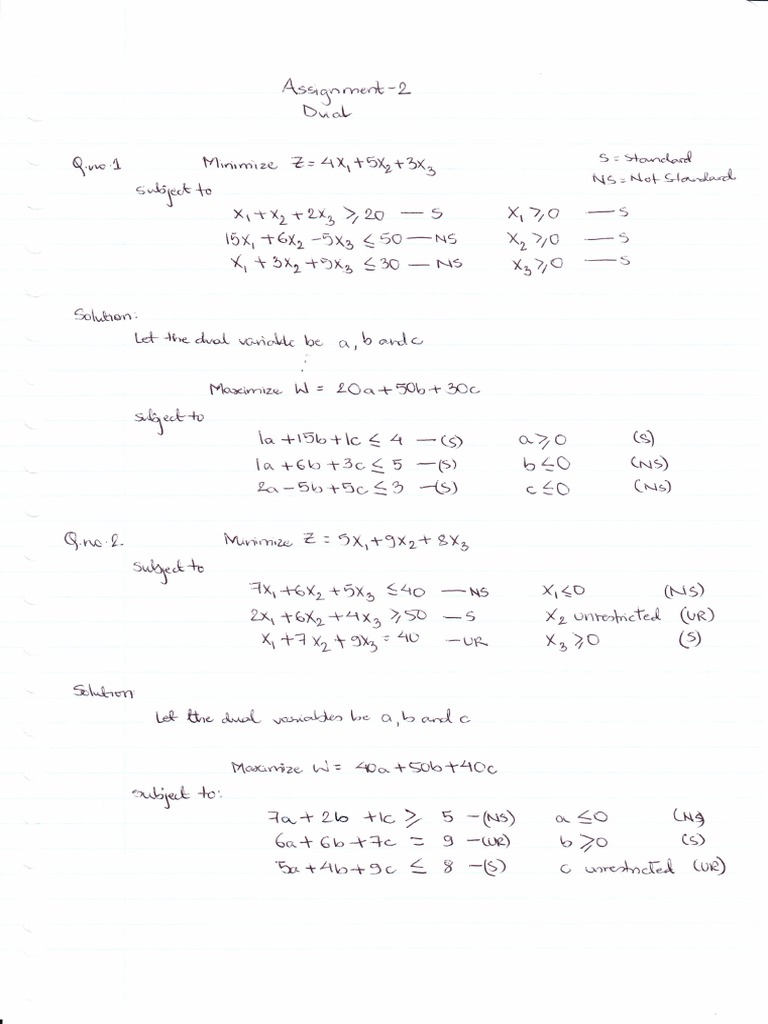 Assignment-2
Dual
Q.no.1 Minimize Z = 4X₁+5X₂+3X₃ S = Standard
NS = Not Standard
subject to
X₁+X₂+2X₃ ≥ 20 — S X₁ ≥ 0 — S
15X₁+6X₂-5X₃ ≤ 50 — NS X₂ ≥ 0 — S
X₁+3X₂+5X₃ ≤ 30 — NS X₃ ≥ 0 — S
Solution:
Let the dual variable be a, b and c
⋮
Maximize W = 20a+50b+30c
subject to
1a+15b+1c ≤ 4 —(S) a ≥ 0 (S)
1a+6b+3c ≤ 5 —(S) b ≤ 0 (NS)
2a-5b+5c ≤ 3 —(S) c ≤ 0 (NS)
Q.no.2. Minimize Z = 5X₁+9X₂+8X₃
subject to
7X₁+6X₂+5X₃ ≤ 40 — NS X₁ ≤ 0 (NS)
2X₁+6X₂+4X₃ ≥ 50 — S X₂ unrestricted (UR)
X₁+7X₂+9X₃ = 40 — UR X₃ ≥ 0 (S)
Solution
Let the dual variables be a, b and c
Maximize W = 40a+50b+40c
subject to:
7a+2b+1c ≥ 5 —(NS) a ≤ 0 (NS)
6a+6b+7c = 9 —(UR) b ≥ 0 (S)
5a+4b+9c ≤ 8 —(S) c unrestricted (UR)